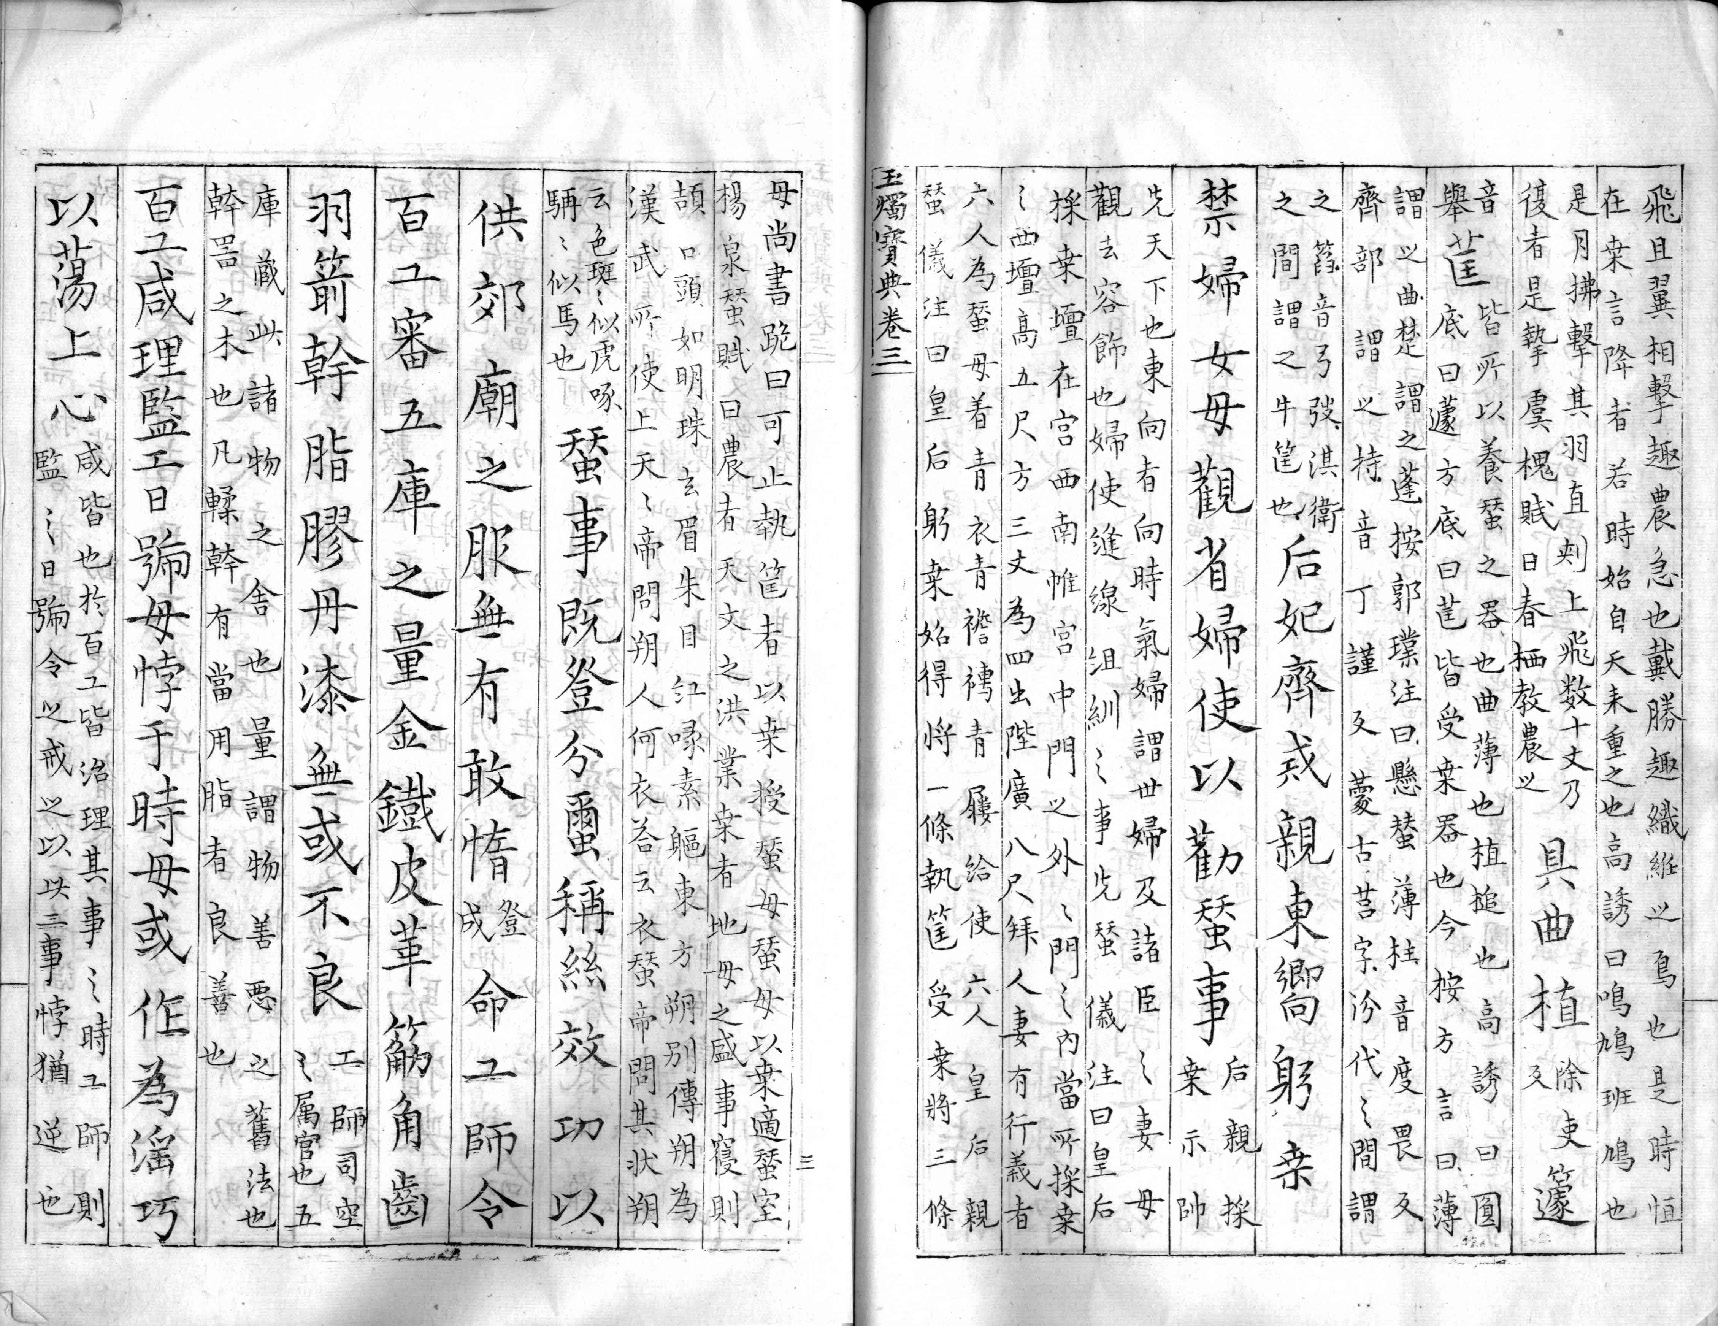 飛且翼相擊趣農急也戴勝趣織絍之鳥也是時恒
在桒言降者若時始自天来重之也高誘曰鳴鳩班鳩也
是月拂擊其羽直刾上飛数十丈乃
復者是摯虞槐賦曰春栖教農之
具曲植
除吏
反
籧
音
舉
筐
皆所以養蚕之器也曲薄也植槌也高誘曰圓
底曰籧方底曰筐皆受桒器也今桉方言曰薄
謂之曲楚謂之蓬按郭璞注曰懸蚕薄柱音度畏反
齊部謂之持音丁謹反蔓古莒字汾代〻間謂
之䈰音弓弢淇衛
之間謂之牛筐也
后妃齊戒親東鄉躬桒
禁婦女毋觀省婦使以勸蚕事
后親採
桒示帥
先天下也東向者向時氣婦謂世婦及諸臣〻妻毋
觀去容飾也婦使縫線組紃〻事先蚕儀注曰皇后
採桒壇在宫西南帷宫中門之外〻門〻内當所採桒
〻西壇高五尺方三丈為四出陛廣八尺拜人妻有行義者
六人為蚕母着青衣青襜襦青屨給使六人皇后親
蚕儀注曰皇后躬桒始得将一條執筐受桒將三條
玉燭寶典卷三
三
毋尚書跪曰可止執筐者以桒授蚕母蚕母以桒適蚕室
楊泉蚕賦曰農者天文之洪業桒者地母之盛事寑則
頡口頭如明珠玄眉朱目紅喙素軀東方朔別傳朔為
漢武所使上天〻帝問朔人何衣荅云衣蚕帝問其状朔
云色班〻似虎啄
䮍〻似馬也
蚕事既登分蠒稱絲效功以
供郊廟之服無有敢惰
登
成
命工師令
百工審五庫之量金鐵皮革筋角齒
羽箭幹脂膠丹漆無或不良
工師司空
〻属官也五
庫蔵此諸物之舎也量謂物善悪之舊法也
幹器之木也凡輮幹有當用脂者良善也
百工咸理監工日號毋悖于時毋或作為滛巧
以蕩上心
咸皆也於百工皆治理其事〻時工師則
監〻日號令之戒之以此三事悖猶逆也